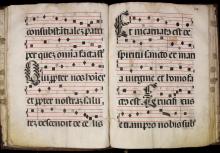 consubstātialez patri
per quez omīa facta st
Qui ppter nos hoīes
et ppter nostraz salu
tez descendit de celis
Et incarnats est de
spiritu sancto ex mari
a virgine et homo fa
ctus est Crucifixus
etiam pro nobis sub